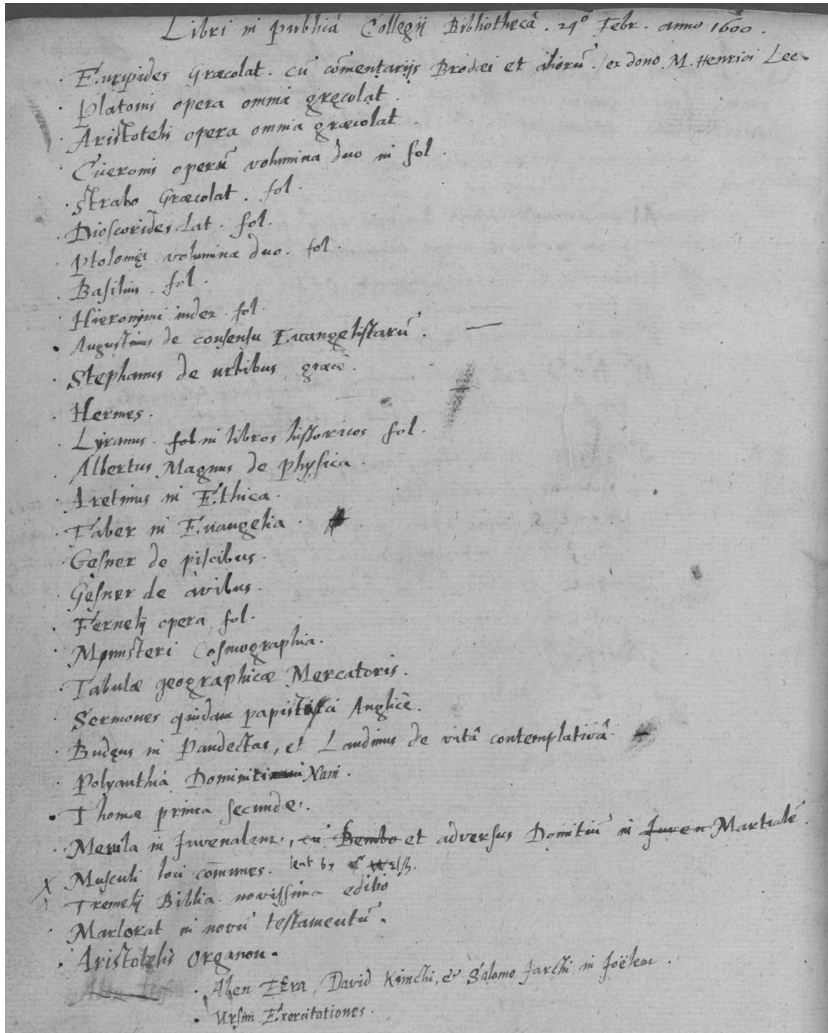 Libri in publicâ Collegij Bibliothecâ. 24° Febr. anno 1600.
. Euripides Græcolat. cũ cõmentarijs Brodæi et aliorũ. / ex dono M. Henrici Lee.
. Platonis opera omnia gręcolat.
. Aristotelis opera omnia græcolat.
. Ciceronis operũ volumina duo in fol.
. Strabo Græcolat. fol.
. Dioscorides Lat. fol.
. Ptolomęi volumina duo. fol.
. Basilius. fol.
. Hieronymi index fol.
. Augustinus de consensu Euangelistarũ. —
. Stephanus de urbibus græcè.
. Hermes.
. Lyranus in libros historicos fol.
. Albertus Magnus de physica.
. Aretinus in Ethica.
. Faber in Euangelia.
. Gesner de piscibus.
. Gesner de avibus.
. Fernelij opera fol.
. Munsteri Cosmographia.
. Tabulæ geographicæ Mercatoris.
. Sermones quidam papistici Anglicè.
. Budęus in Pandectas, et Landinus de vitâ contemplativâ.
. Polyanthia Dominici Nani.
. Thomæ prima secundę.
. Merula in Juvenalem, cũ Bembo et adversus Domitiũ in Juven Martialẽ.
X . Musculi loci cõmunes. lent by
. Tremelij Biblia novissima editio
. Marlorat in novũ testamentũ.
. Aristotelis Organon.
. Aben Ezra, David Kimchi, & Salomo Jarchi in Joëlem.
. Ursini Exercitationes.